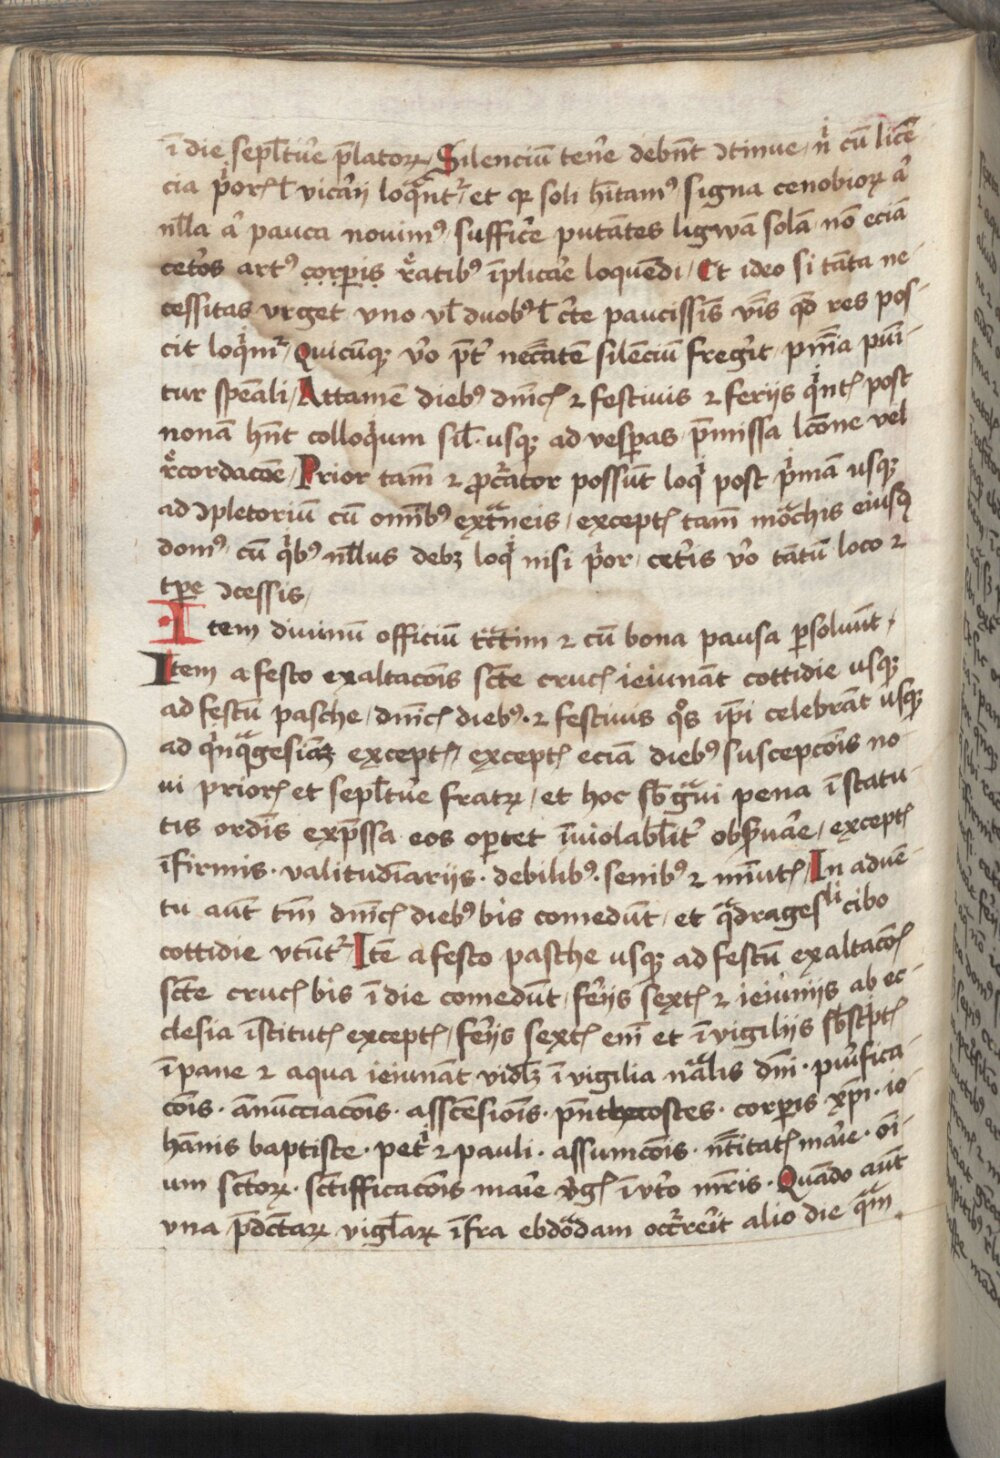 ī die sepl̄tu̾e p̄latoꝝ / Silenciū ten̾e debn̄t ꝯtinue · nͥ cū licē
cia pͥorꝭ ł vica̾ij loqͣnt᷑ / et qꝛ soli h̄itamꝰ signa cenobioꝝ aͥ
nl̄la aͥ pauca nouimꝰ suffic̾e putātes ligwā solā nō eciā
cet̾os artꝰ corꝑis rͦatibꝰ īplica̾e loquēdi / Et ideo si tāta ne
cessitas vrget vno vl̄ duobꝰ ł c̾te paucissīs v̄ıs qd̄ res pos-
cit loqͥm᷑ / Quicūqꝫ v̾o p̄t̾ nec̄c̄atē silēciū freg̾it · pn̄īa pūi-
tur spēali / Attamē diebꝰ dn̄icꝭ ⁊ festiuis ⁊ ferijs qͥntꝭ post
nonā hn̄t colloqͥum sil̄ · usqꝫ ad vesꝑas p̄missa lc̄one vel
rͦcordacōe / Prior tam̄ ⁊ ꝓc᷑ator possūt loqͥ post pͥmā usqꝫ
ad ꝯpletoriū cū om̄ibꝰ extͣneis / exceptꝭ tam̄ moͣchis eiusdē
domꝰ · cū qͥbꝰ nl̄lus debꝫ loqͥ nisi pͥor · cet̾is v̾o tātū loco ⁊
tꝑe ꝯcessis /
Item diuinū officiū tc̄tim ⁊ cū bona pausa ꝑsoluūt ·
Item a festo exaltacōis sc̄te crucꝭ ieiunāt cottidie usqꝫ
ad festū pasche / dn̄icꝭ diebꝰ · ⁊ festiuis qͦs ip̄i celebrāt usqꝫ
ad qͥnqͣgesiāꝫ exceptꝭ / exceptꝭ eciā diebꝰ suscepcōis no-
ui priorꝭ et sepl̄tu̾e fratꝝ / et hoc sb̄ gͣui pena ī statu-
tis ordīs exp̄ssa eos oꝑtet īuiolabl̄it̾ obẜua̾e / exceptꝭ
īfirmis · valitudīarijs · debilibꝰ · senibꝰ ⁊ mīutꝭ / In aduē
tu aūt tm̄ dn̄icꝭ diebꝰ bis comedūt · et qͣdragesˡⁱ cibo
cottidie vtūt᷑ · Itē a festo pasche usqꝫ ad festū exaltacōꝭ
sc̄te crucꝭ bis ī die comedūt / fe̾ijs sextꝭ ⁊ ieiūnijs ab ec-
clesia īstitutꝭ exceptꝭ / fe̾ijs sextꝭ em̄ et ī vigiliis sb̄sc͛ptꝭ
ī pane ⁊ aqua ieiunāt vidl̄ꝫ ī vigilia nͣalis dn̄i · pu̾ifica-
cōis · ānūcciacōis · asscēsiōis · pn̄thecostes · corꝑis xp̄i · io-
hānis baptiste · petͥ ⁊ pauli · assumcōis · nt̄itatꝭ ma̾ie · oī-
um sc̄toꝝ · sc̄tifficacōis ma̾ie v̾gꝭ ī vt̾o mr̄is · Quādo aūt
vna p̄dc̄taꝝ vigl̄aꝝ īfra ebdoͣdam oc᷑re̾it alio die qͣm